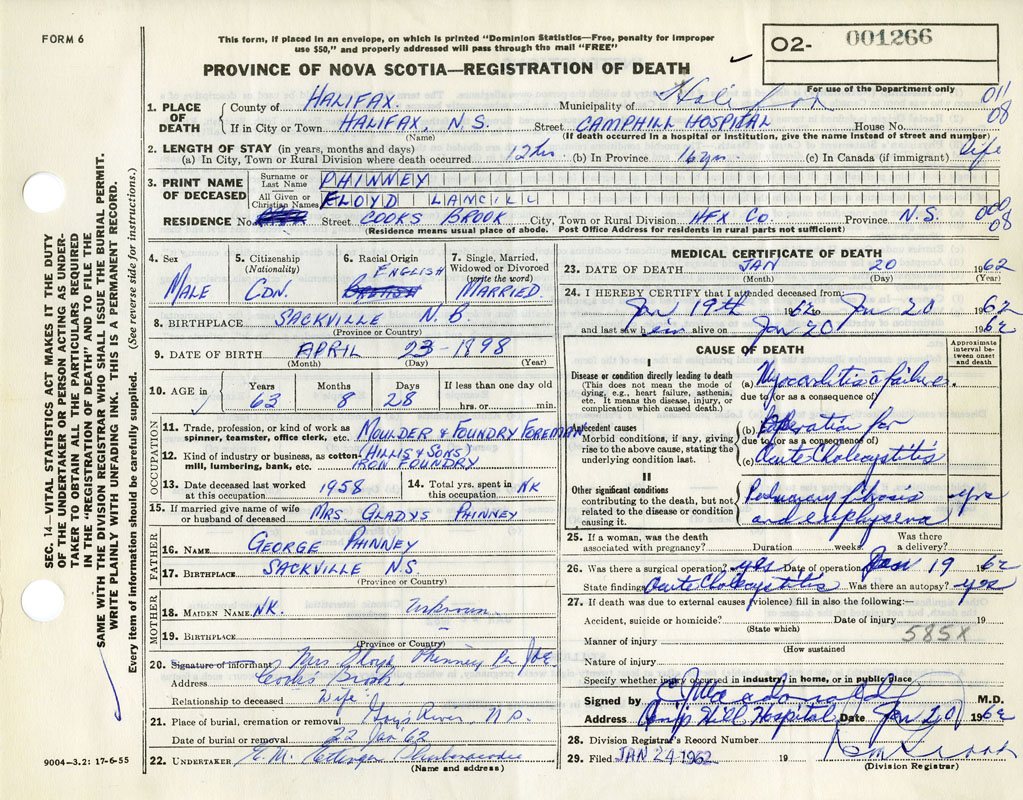 FORM 6
This form, if placed in an envelope, on which is printed "Dominion Statistics—Free, penalty for improper
use $50," and properly addressed will pass through the mail "FREE"
O2- 001266
PROVINCE OF NOVA SCOTIA—REGISTRATION OF DEATH
For use of the Department only
1. PLACE OF DEATH { County of HALIFAX. Municipality of Halifax 011
If in City or Town HALIFAX, N.S. Street CAMPHILL HOSPITAL House No. 08
(Name) (If death occurred in a hospital or institution, give the name instead of street and number)
2. LENGTH OF STAY (in years, months and days)
(a) In City, Town or Rural Division where death occurred 12 hrs (b) In Province 16 yrs. (c) In Canada (if immigrant) Life
3. PRINT NAME OF DECEASED
Surname or Last Name PHINNEY
All Given or Christian Names FLOYD LAMCILL
RESIDENCE No. Street COOKS BROOK City, Town or Rural Division HFX CO. Province N.S. 000
08
(Residence means usual place of abode. Post Office Address for residents in rural parts not sufficient)
4. Sex MALE
5. Citizenship (Nationality) CDN.
6. Racial Origin ENGLISH
7. Single, Married, Widowed or Divorced (write the word) MARRIED.
8. BIRTHPLACE SACKVILLE N.B.
(Province or Country)
9. DATE OF BIRTH APRIL 23 - 1898
(Month) (Day) (Year)
10. AGE in Years 63 Months 8 Days 28 If less than one day old hrs. or min.
OCCUPATION
11. Trade, profession, or kind of work as spinner, teamster, office clerk, etc. MOULDER & FOUNDRY FOREMAN
12. Kind of industry or business, as cotton mill, lumbering, bank, etc. (HILLIS & SONS) IRON FOUNDRY
13. Date deceased last worked at this occupation 1958
14. Total yrs. spent in this occupation NK
15. If married give name of wife or husband of deceased MRS. GLADYS PHINNEY
FATHER
16. NAME GEORGE PHINNEY
17. BIRTHPLACE SACKVILLE N.S.
(Province or Country)
MOTHER
18. MAIDEN NAME NK. Unknown
19. BIRTHPLACE —
(Province or Country)
20. Signature of informant Mrs Floyd Phinney Per
Address Cooks Brook
Relationship to deceased Wife
21. Place of burial, cremation or removal Gays River, N.S.
Date of burial or removal 22 Jan '62
22. UNDERTAKER E.M. Ettinger Shubenacadie
(Name and address)
MEDICAL CERTIFICATE OF DEATH
23. DATE OF DEATH JAN 20 1962
(Month) (Day) (Year)
24. I HEREBY CERTIFY that I attended deceased from:
Jan 19th 1962 to Jan 20 1962
and last saw him alive on Jan 20 1962
CAUSE OF DEATH
Approximate interval between onset and death
I
Disease or condition directly leading to death
(This does not mean the mode of dying, e.g., heart failure, asthenia, etc. It means the disease, injury, or complication which caused death.)
(a) Myocarditis c̄ failure.
due to (or as a consequence of)
Antecedent causes
Morbid conditions, if any, giving rise to the above cause, stating the underlying condition last.
(b) Operation for
due to (or as a consequence of)
(c) Acute Cholecystitis
II
Other significant conditions
contributing to the death, but not related to the disease or condition causing it.
Pulmonary fibrosis yrs
and emphysema
25. If a woman, was the death associated with pregnancy? Duration weeks. Was there a delivery?
26. Was there a surgical operation? yes Date of operation Jan 19 1962
State findings Acute Cholecystitis Was there an autopsy? yes
27. If death was due to external causes (violence) fill in also the following:—
Accident, suicide or homicide? Date of injury 19
(State which)
585X
Manner of injury
(How sustained
Nature of injury
Specify whether injury occurred in industry, in home, or in public place
Signed by E. Macdonald M.D.
Address Camp Hill Hospital Date Jan 20 1962
28. Division Registrar's Record Number
29. Filed JAN 24 1962 19
(Division Registrar)
SEC. 14—VITAL STATISTICS ACT MAKES IT THE DUTY
OF THE UNDERTAKER OR PERSON ACTING AS UNDER-
TAKER TO OBTAIN ALL THE PARTICULARS REQUIRED
IN THE "REGISTRATION OF DEATH" AND TO FILE THE
SAME WITH THE DIVISION REGISTRAR WHO SHALL ISSUE THE BURIAL PERMIT.
WRITE PLAINLY WITH UNFADING INK. THIS IS A PERMANENT RECORD.
Every item of information should be carefully supplied. (See reverse side for instructions.)
9004—3.2: 17-6-55